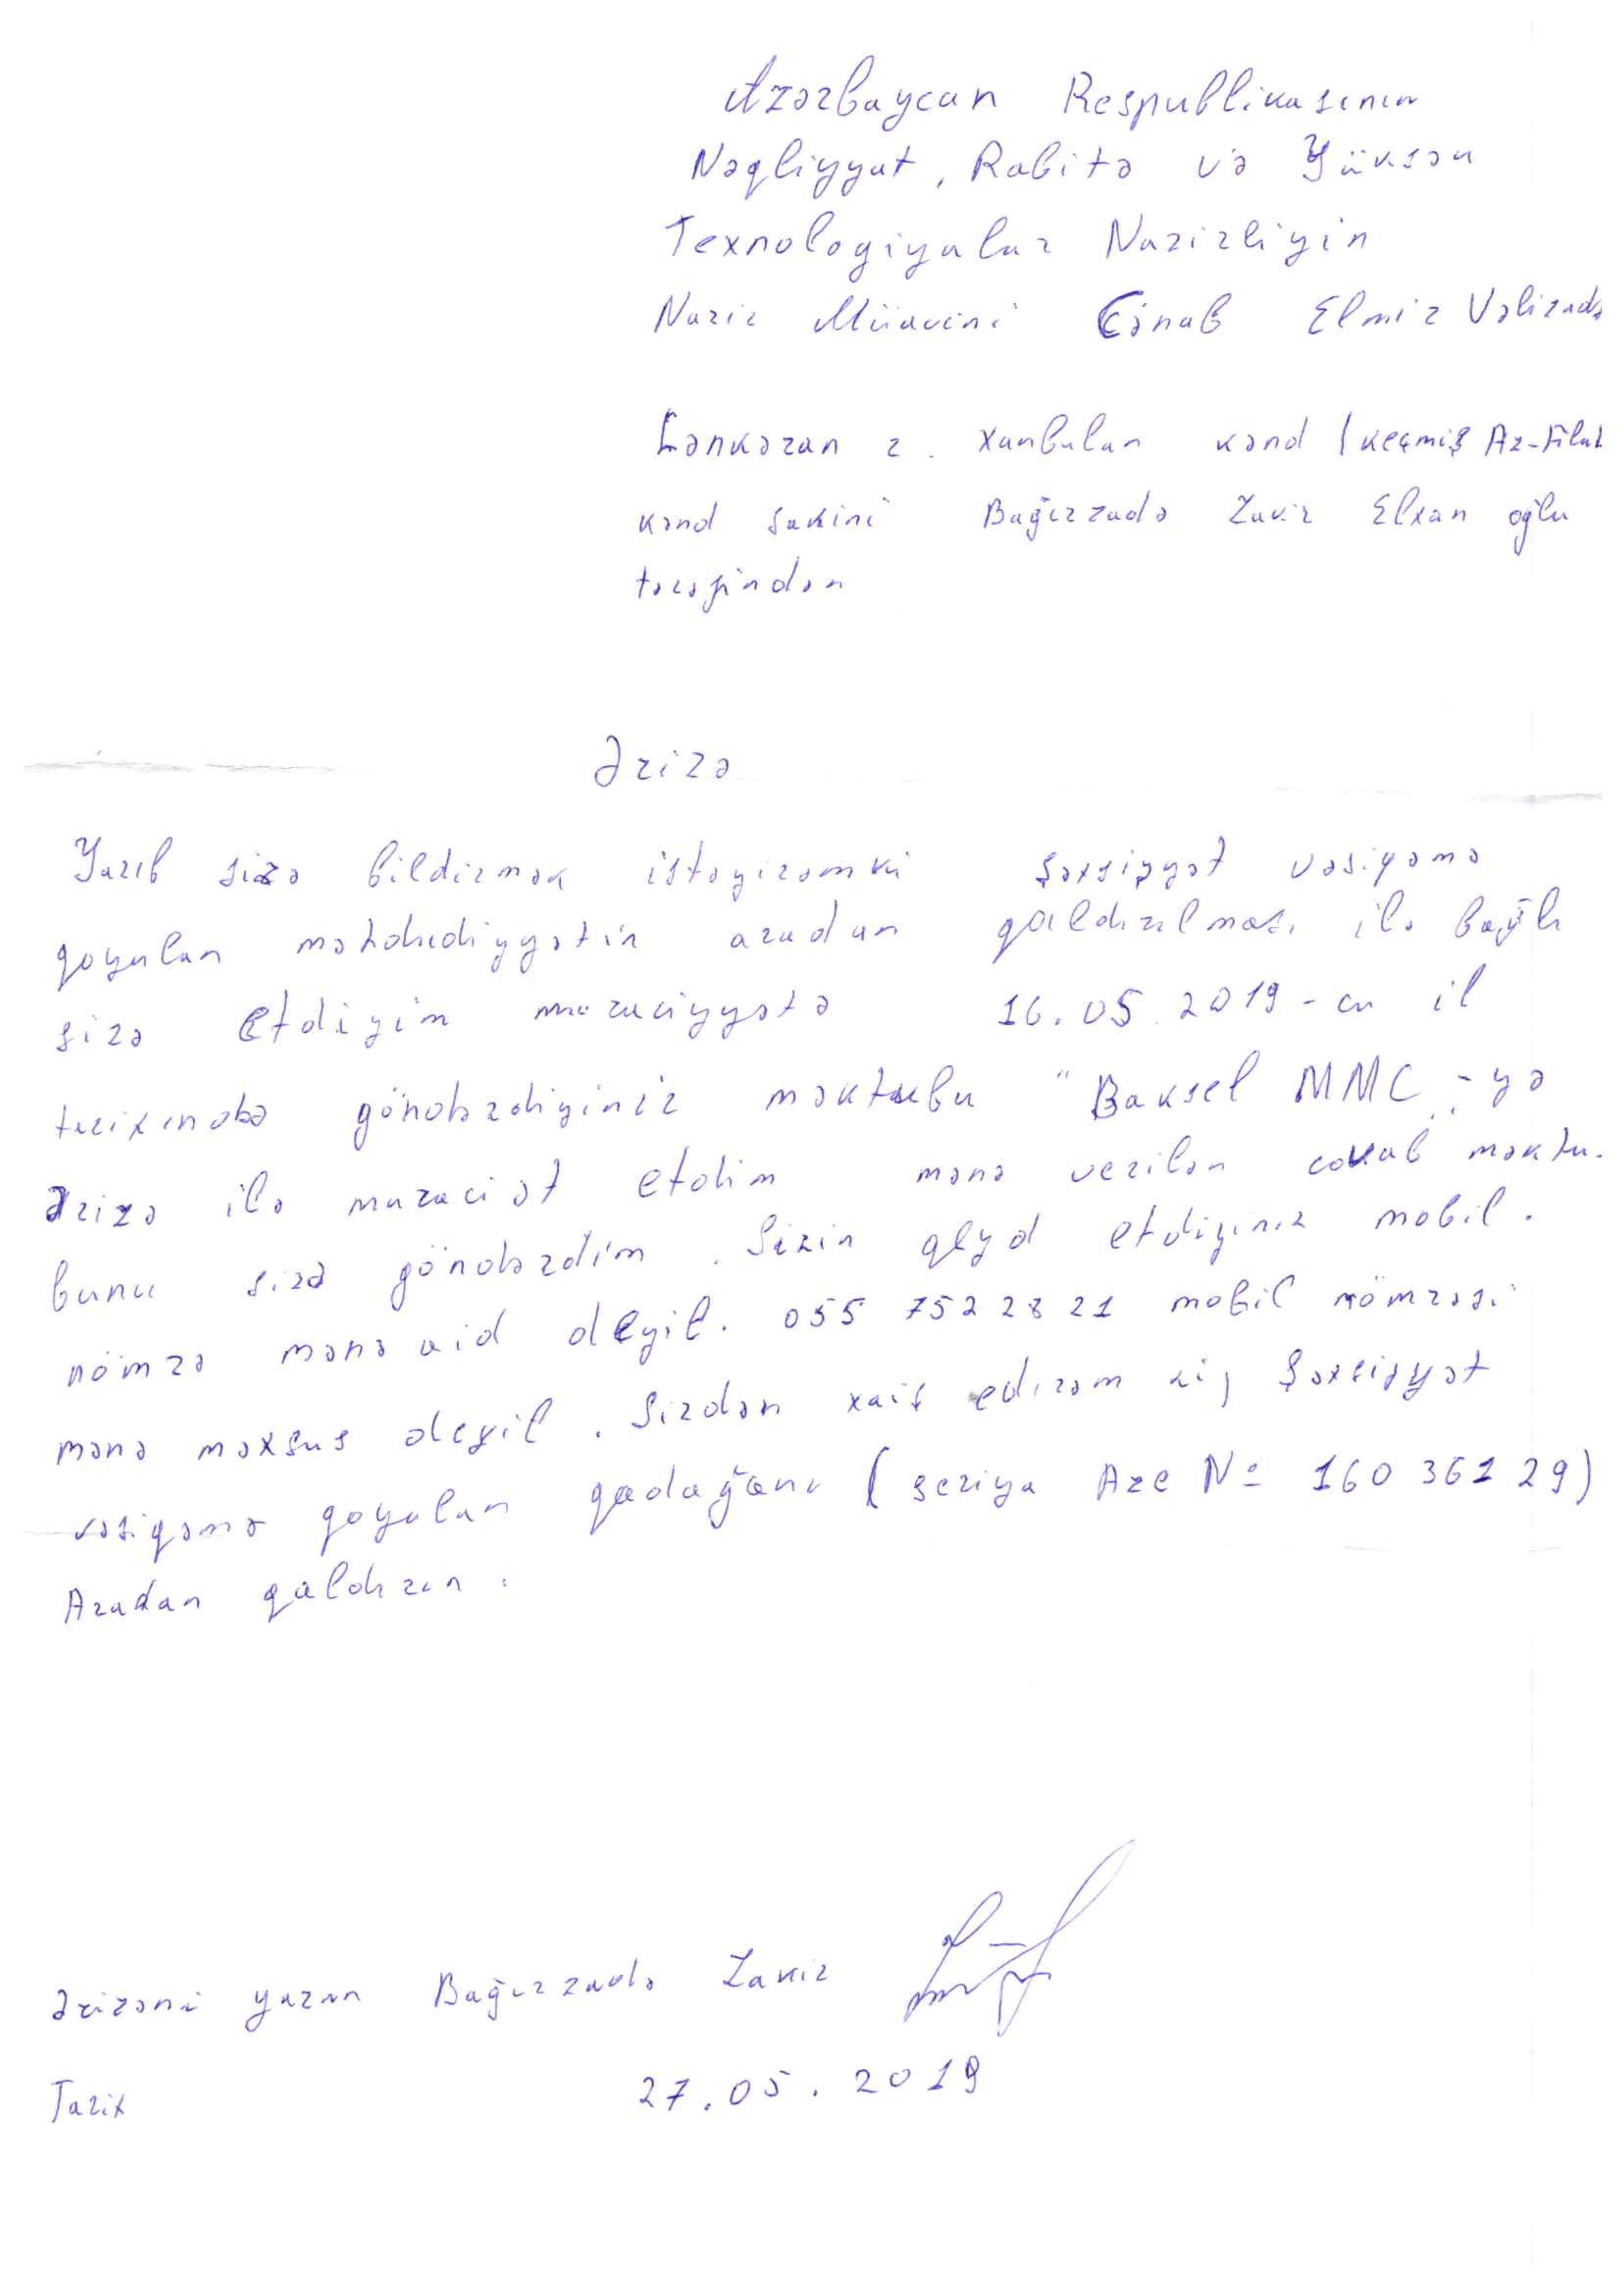 Azərbaycan Respublikasının
Nəqliyyat, Rabitə və Yüksən
Texnologiyalar Nazirliyin
Nazir Müavini Cənab Elmir Vəlizadə
Lənkəran r. Xanbulan kənd (keçmiş Az-Filial
kənd sakini Bağırzadə Zakir Elxan oğlu
tərəfindən
Ərizə
Yazıb sizə bildirmək istəyirəmki şəxsiyyət vəsiqəmə
qoyulan məhdudiyyətin aradan qaldırılması ilə bağlı
sizə etdiyim muraciyyətə 16.05.2019-cu il
tarixində göndərdiyiniz məktubu "Baksel MMC"-yə
Ərizə ilə muraciət etdim mənə verilən cavab məktu-
bunu sizə göndərdim. Sizin qeyd etdiyiniz mobil.
nömrə mənə aid deyil. 055 752 28 21 mobil nömrəsi
mənə məxsus deyil. Sizdən xaiş edirəm ki, Şəxsiyyət
vəsiqəmə qoyulan qadağanı (seriya Aze № 160 361 29)
Aradan qaldırın.
Ərizəni yazan Bağırzadə Zakir
Tarix 27.05.2019